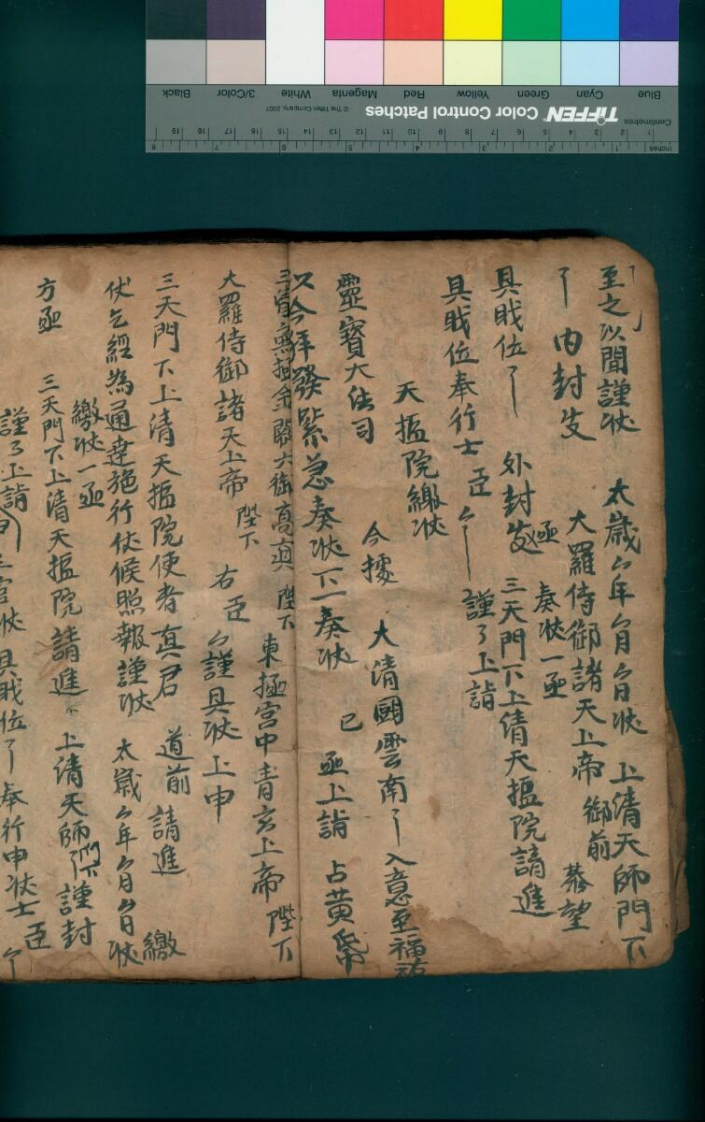 至之以聞謹狀　太歲厶年厶月厶日狀　上清天師門下
内封发　大羅侍御諸天上帝　御前　恭望
具戝位　外封发　函　奏狀一函
三天門下上清天摳院請進
具戝位奉行士　臣厶　謹了上詣
天摳院繳狀
今據　大清國雲南　入意至福祐
靈寶大法司
以今拜發緊急奏狀下一奏狀　已　函上詣　占黄帋
金闕六御高真　陛下　東極宮中青玄上帝　陛下
大羅侍御諸天上帝　陛下　右臣　厶謹具狀上申
三天門下上清天摳院使者真君　道前　請進　繳
伏乞經為通達施行伏候照報謹狀　太歲厶年厶月厶日狀
繳狀一函
方函　三天門下上清天摳院請進　上清天師門下謹封
謹了上詣
三官狀具戝位　奉行申狀士臣厶
Blue
Cyan
Green
Yellow
Red
Magenta
White
3/Color
Black
Centimetres
TIFFEN Color Control Patches
© The Tiffen Company, 2007
Inches